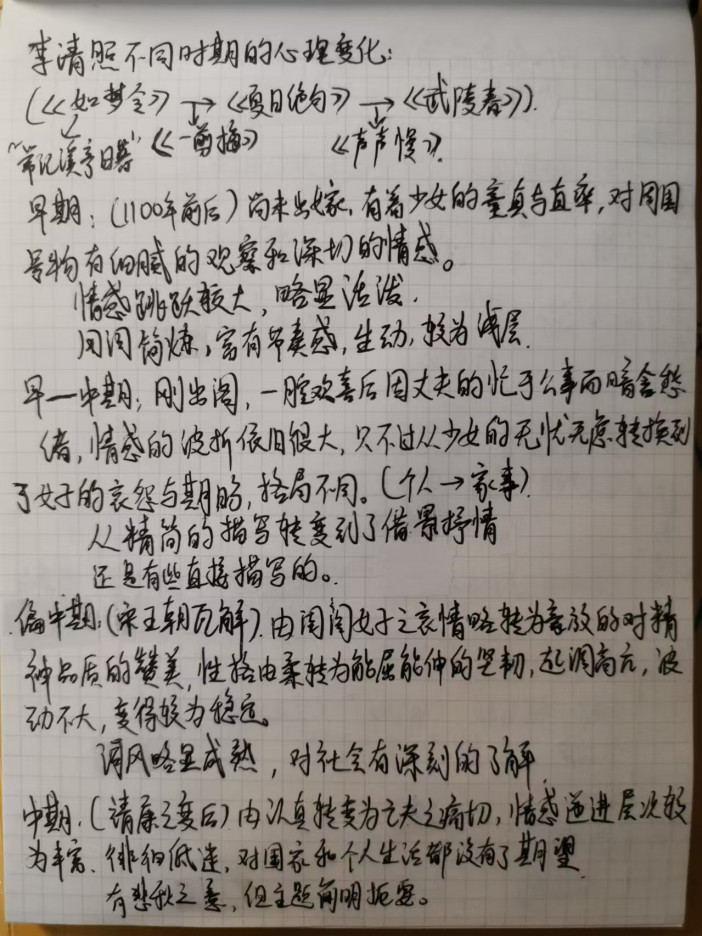 李清照不同时期的心理变化:
(《如梦令》→《夏日绝句》→《武陵春》).
"常记溪亭日暮" 《一剪梅》 《声声慢》.
早期:(1100年前后)尚未出嫁,有着少女的童真与直率,对周围
景物有细腻的观察和深切的情感。
情感跳跃较大,略显活泼.
用词简炼,富有节奏感,生动,较为浅层.
早一中期:刚出阁,一腔欢喜后因丈夫的忙于公事而暗含愁
绪,情感的波折依旧很大,只不过从少女的无忧无虑转换到
了女子的哀怨与期盼,格局不同。(个人→家事)
从精简的描写转变到了借景抒情
还是有些直接描写的。
偏中期:(宋王朝瓦解).由闺阁女子之哀情略转为豪放的对精
神品质的赞美,性格由柔转为能屈能伸的坚韧,起调高亢,波
动不大,变得较为稳定。
词风略显成熟,对社会有深刻的了解
中期.(靖康之变后)由认真转变为亡夫之痛切,情感递进层次较
为丰富.徘徊低迷,对国家和个人生活都没有了期望
有悲秋之意,但主题简明扼要。